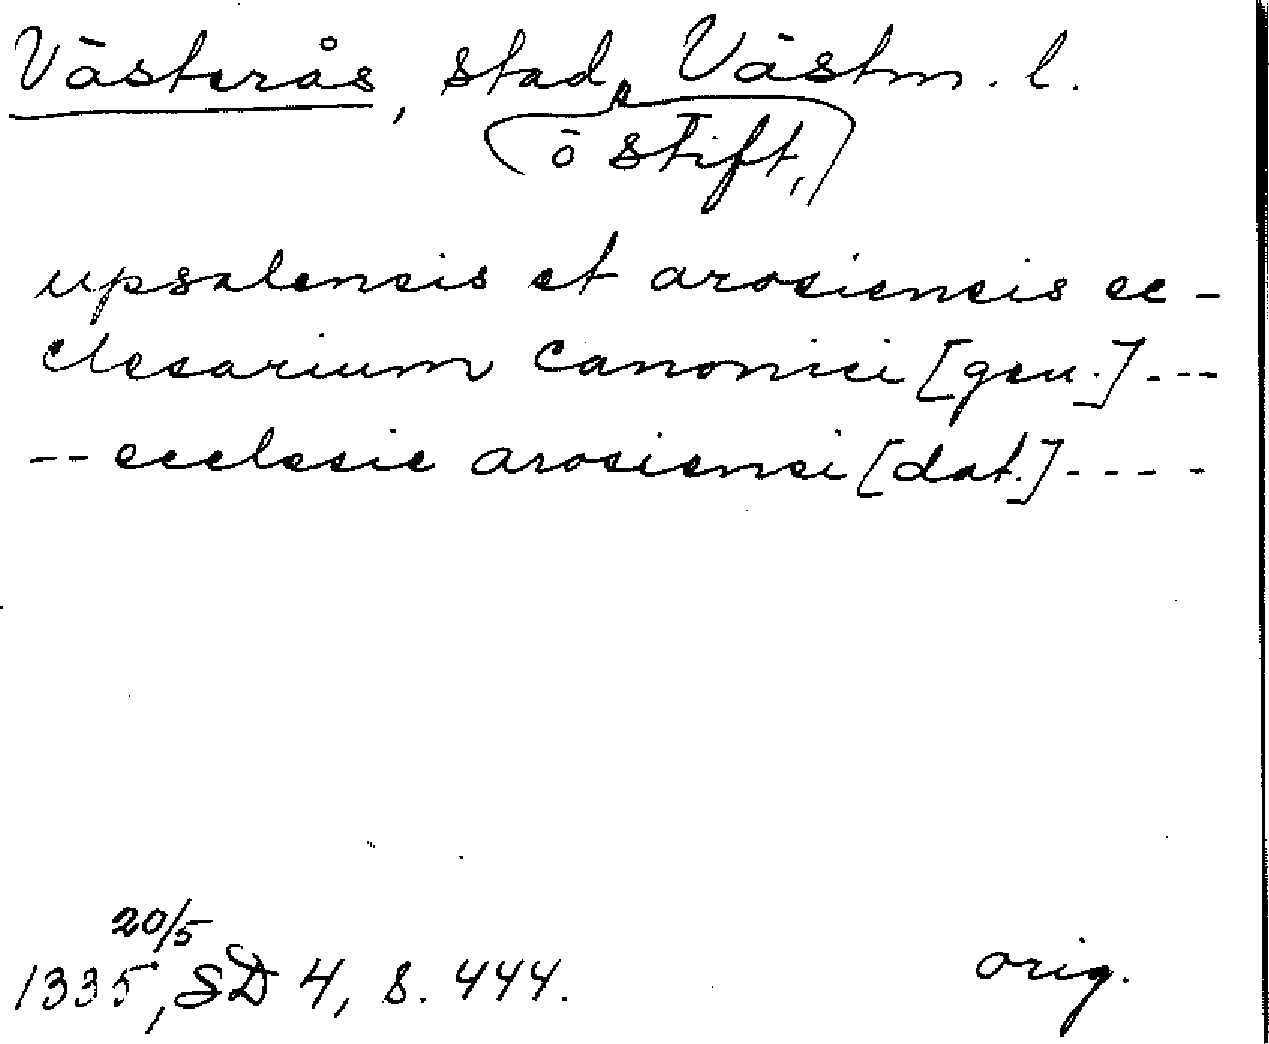 Västerås, stad, Västm. l.
ö stift,
upsalensis et arosiensis ec-
clesarium canonici [gen.]---
-- ecclesie arosiensi [dat.]----
20/5
1335, SD 4, s. 444.
orig.